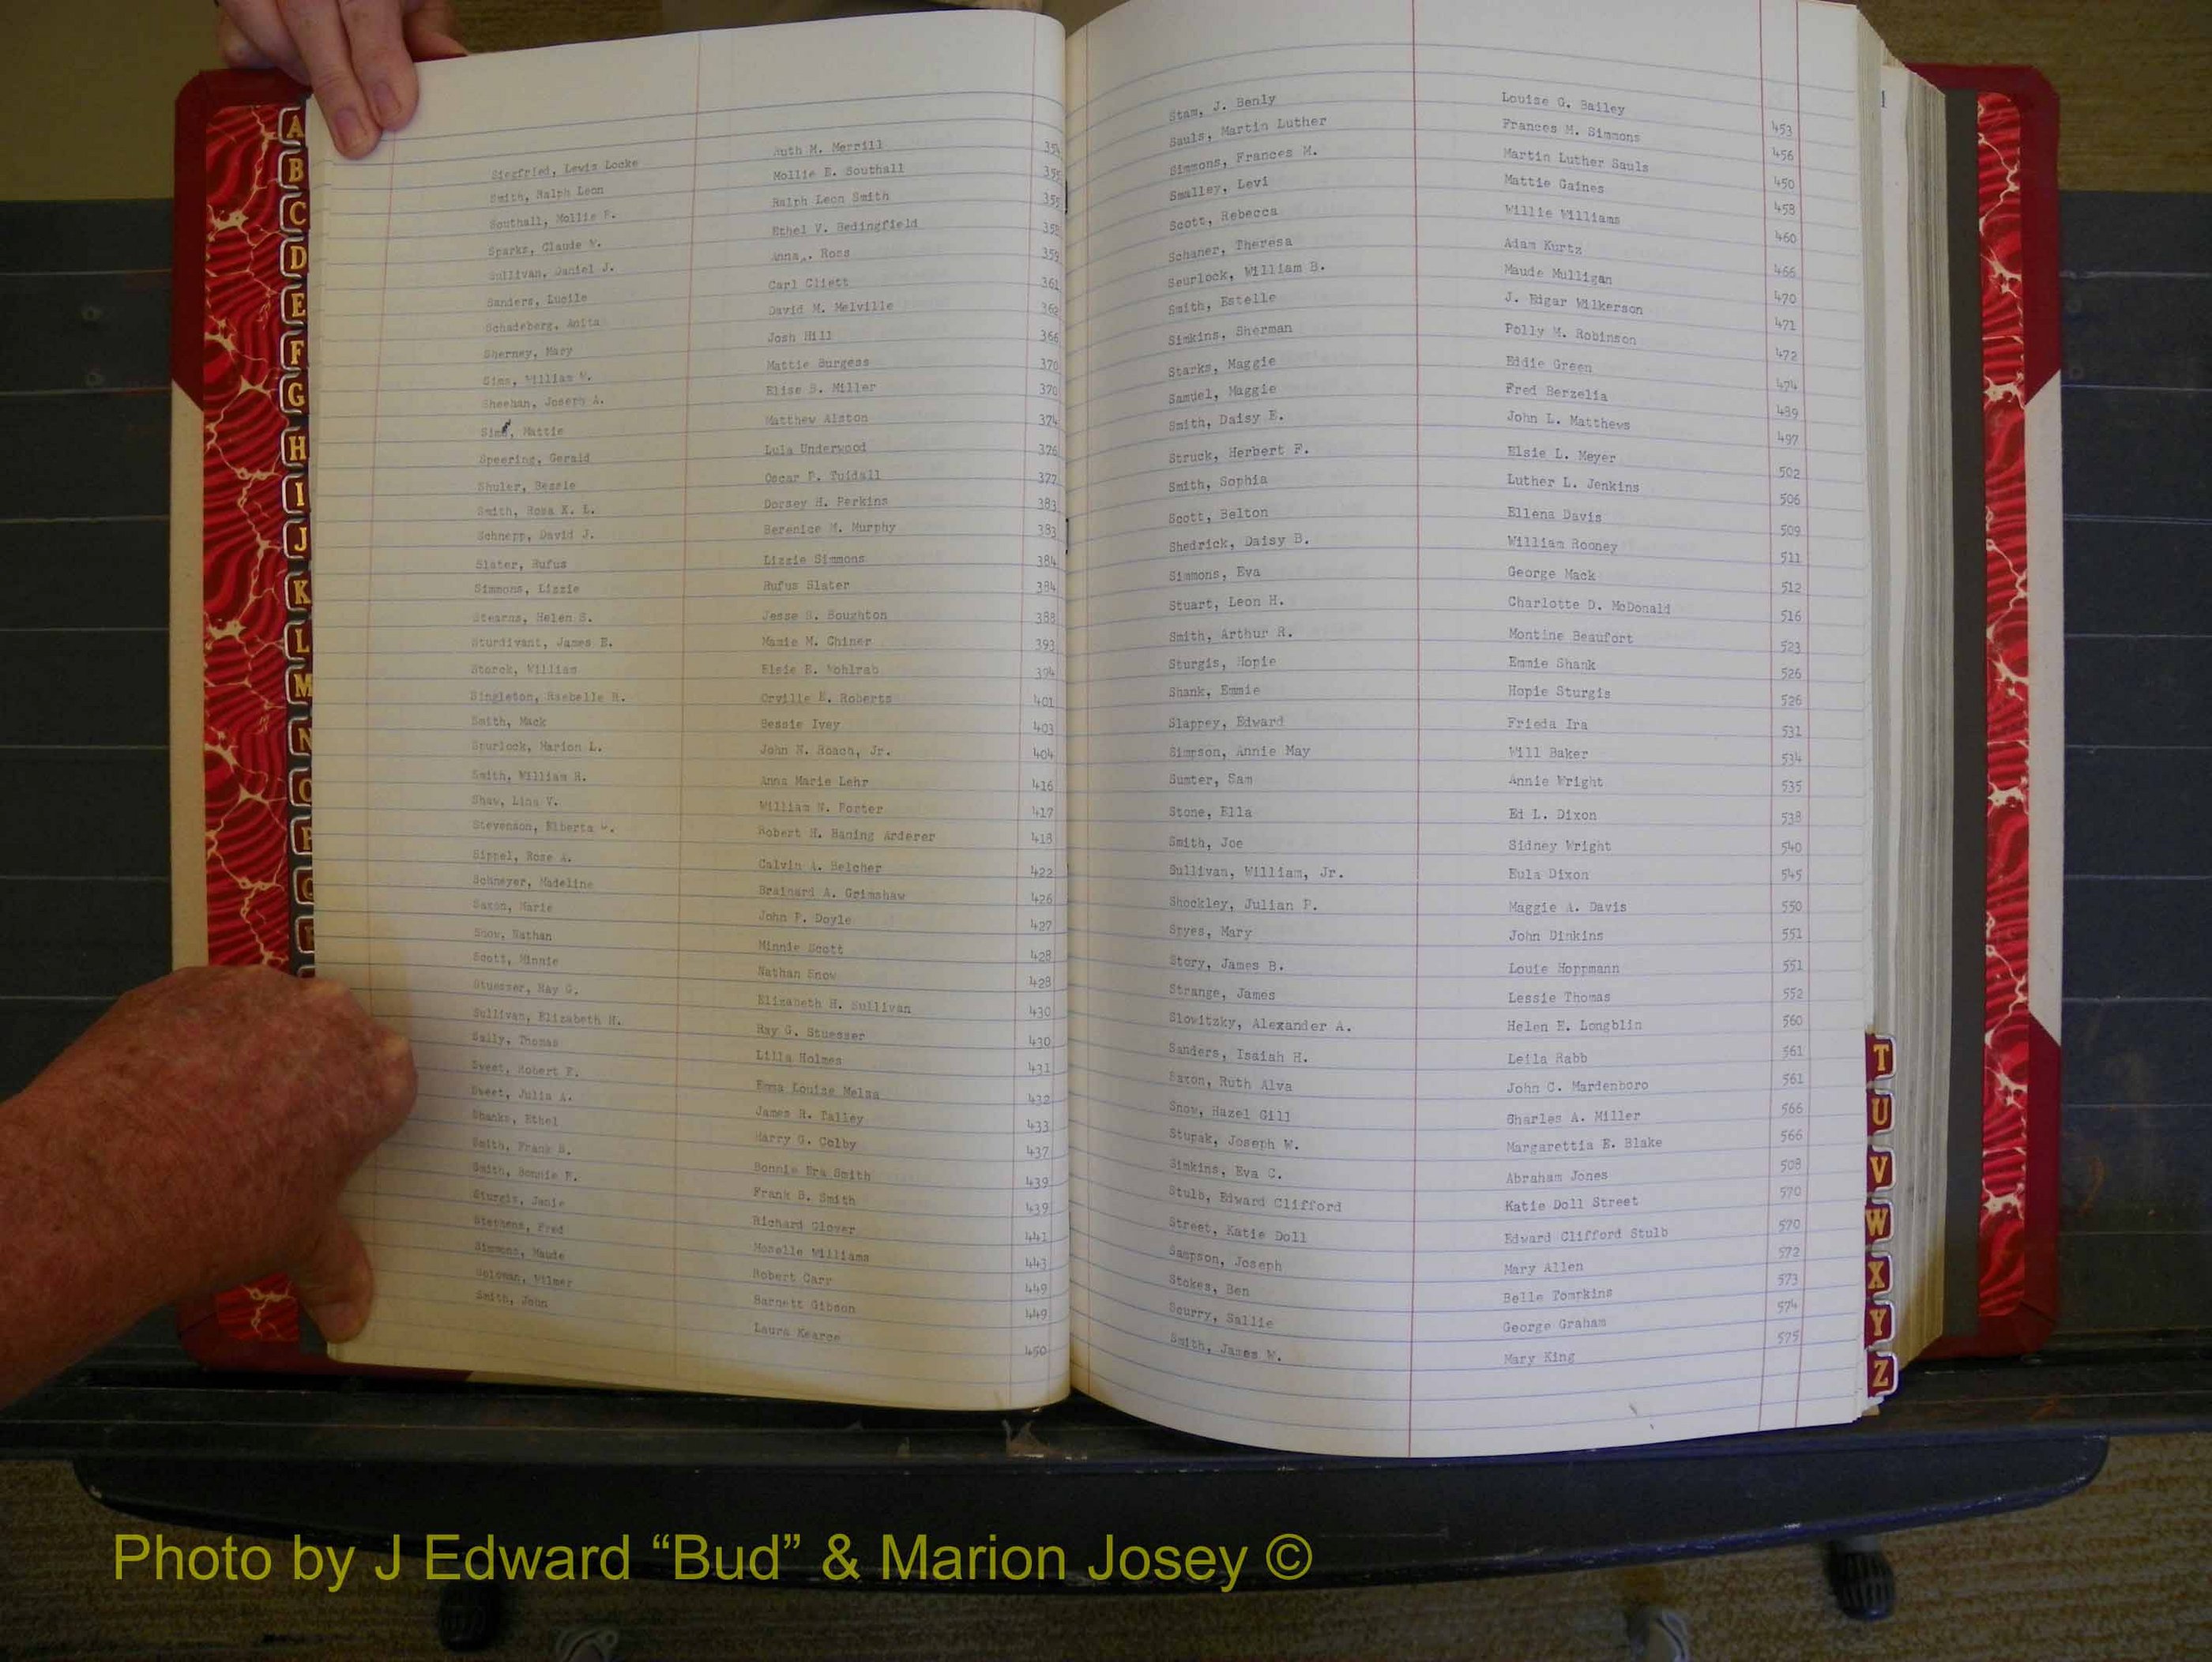 A
B
C
D
E
F
G
H
I
J
K
L
M
N
Siegfried, Lewis Locke Ruth M. Merrill
Smith, Ralph Leon Mollie E. Southall 355
Southall, Mollie E. Ralph Leon Smith 355
Sparks, Claude W. Ethel V. Bedingfield 358
Sullivan, Daniel J. Anna . Ross 359
Sanders, Lucile Carl Cliett 361
Schadeberg, Anita David M. Melville 362
Sherney, Mary Josh Hill 366
Sims, William W. Mattie Burgess 370
Sheehan, Joseph A. Elise S. Miller 370
Mattie Matthew Alston 374
Speering, Gerald Lula Underwood 376
Shuler, Bessie Oscar P. Tuidall 377
Smith, Rosa K. L. Dorsey H. Perkins 383
Schnepp, David J. Berenice M. Murphy 383
Slater, Rufus Lizzie Simmons 384
Simmons, Lizzie Rufus Slater 384
Stearns, Helen S. Jesse S. Boughton 388
Sturdivant, James E. Mamie M. Chiner 393
Storck, William Elsie E. Wohlrab 394
Singleton, Rsebelle R. Orville E. Roberts 401
Smith, Mack Bessie Ivey 403
Spurlock, Marion L. John N. Roach, Jr. 404
Smith, William H. Anna Marie Lehr 416
Shaw, Lina V. William N. Porter 417
Stevenson, Elberta Robert H. Haning Arderer 418
Sippel, Rose A. Calvin A. Belcher 422
Schmeyer, Madeline Brainard A. Grimshaw 426
Saxon, Marie John P. Doyle 427
Snow, Nathan Minnie Scott 428
Scott, Minnie Nathan Snow 428
Stuesser, Ray G. Elizabeth H. Sullivan 430
Sullivan, Elizabeth H. Ray G. Stuesser 430
Sally, Thomas Lilla Holmes 431
Sweet, Robert E. Emma Louise Melsa 432
Sweet, Julia A. James R. Talley 433
Shanks, Ethel Harry G. Colby 437
Smith, Frank B. Bonnie Era Smith 439
Smith, Bonnie E. Frank B. Smith 439
Sturgis, Janie Richard Glover 441
Stephens, Fred Moselle Williams 443
Simmons, Maude Robert Gary 449
Wilmer Barnett Gibson 449
Smith, John Laura Kearce 450
Stam, J. Benly Louise G. Bailey 453
Sauls, Martin Luther Frances M. Simmons 456
Simmons, Frances M. Martin Luther Sauls 450
Smalley, Levi Mattie Gaines 458
Scott, Rebecca Willie Williams 460
Schaner, Theresa Adam Kurtz 466
Seurlock, William B. Maude Mulligan 470
Smith, Estelle J. Edgar Wilkerson 471
Simkins, Sherman Polly M. Robinson 472
Starks, Maggie Eddie Green 474
Samuel, Maggie Fred Berzelia 489
Smith, Daisy E. John L. Matthews 497
Struck, Herbert F. Elsie L. Meyer 502
Smith, Sophia Luther L. Jenkins 506
Scott, Belton Ellena Davis 509
Shedrick, Daisy B. William Rooney 511
Simmons, Eva George Mack 512
Stuart, Leon H. Charlotte D. McDonald 516
Smith, Arthur R. Montine Beaufort 523
Sturgis, Hopie Emmie Shank 526
Shank, Emmie Hopie Sturgis 526
Slappey, Edward Frieda Ira 531
Simpson, Annie May Will Baker 534
Sumter, Sam Annie Wright 535
Stone, Ella Ed L. Dixon 538
Smith, Joe Sidney Wright 540
Sullivan, William, Jr. Eula Dixon 545
Shockley, Julian P. Maggie A. Davis 550
Spyes, Mary John Dinkins 551
Story, James B. Louie Hoppmann 551
Strange, James Lessie Thomas 552
Slowitzky, Alexander A. Helen E. Longblin 560
Sanders, Isaiah H. Leila Rabb 561
Saxon, Ruth Alva John C. Mardenboro 561
Snow, Hazel Gill Charles A. Miller 566
Stupak, Joseph W. Margarettia E. Blake 566
Simkins, Eva C. Abraham Jones 508
Stulb, Edward Clifford Katie Doll Street 570
Street, Katie Doll Edward Clifford Stulb 570
Sampson, Joseph Mary Allen 572
Stokes, Ben Belle Tompkins 573
Scurry, Sallie George Graham 574
Smith, James W. Mary King 575
T
U
V
W
X
Y
Z
Photo by J Edward “Bud” & Marion Josey ©